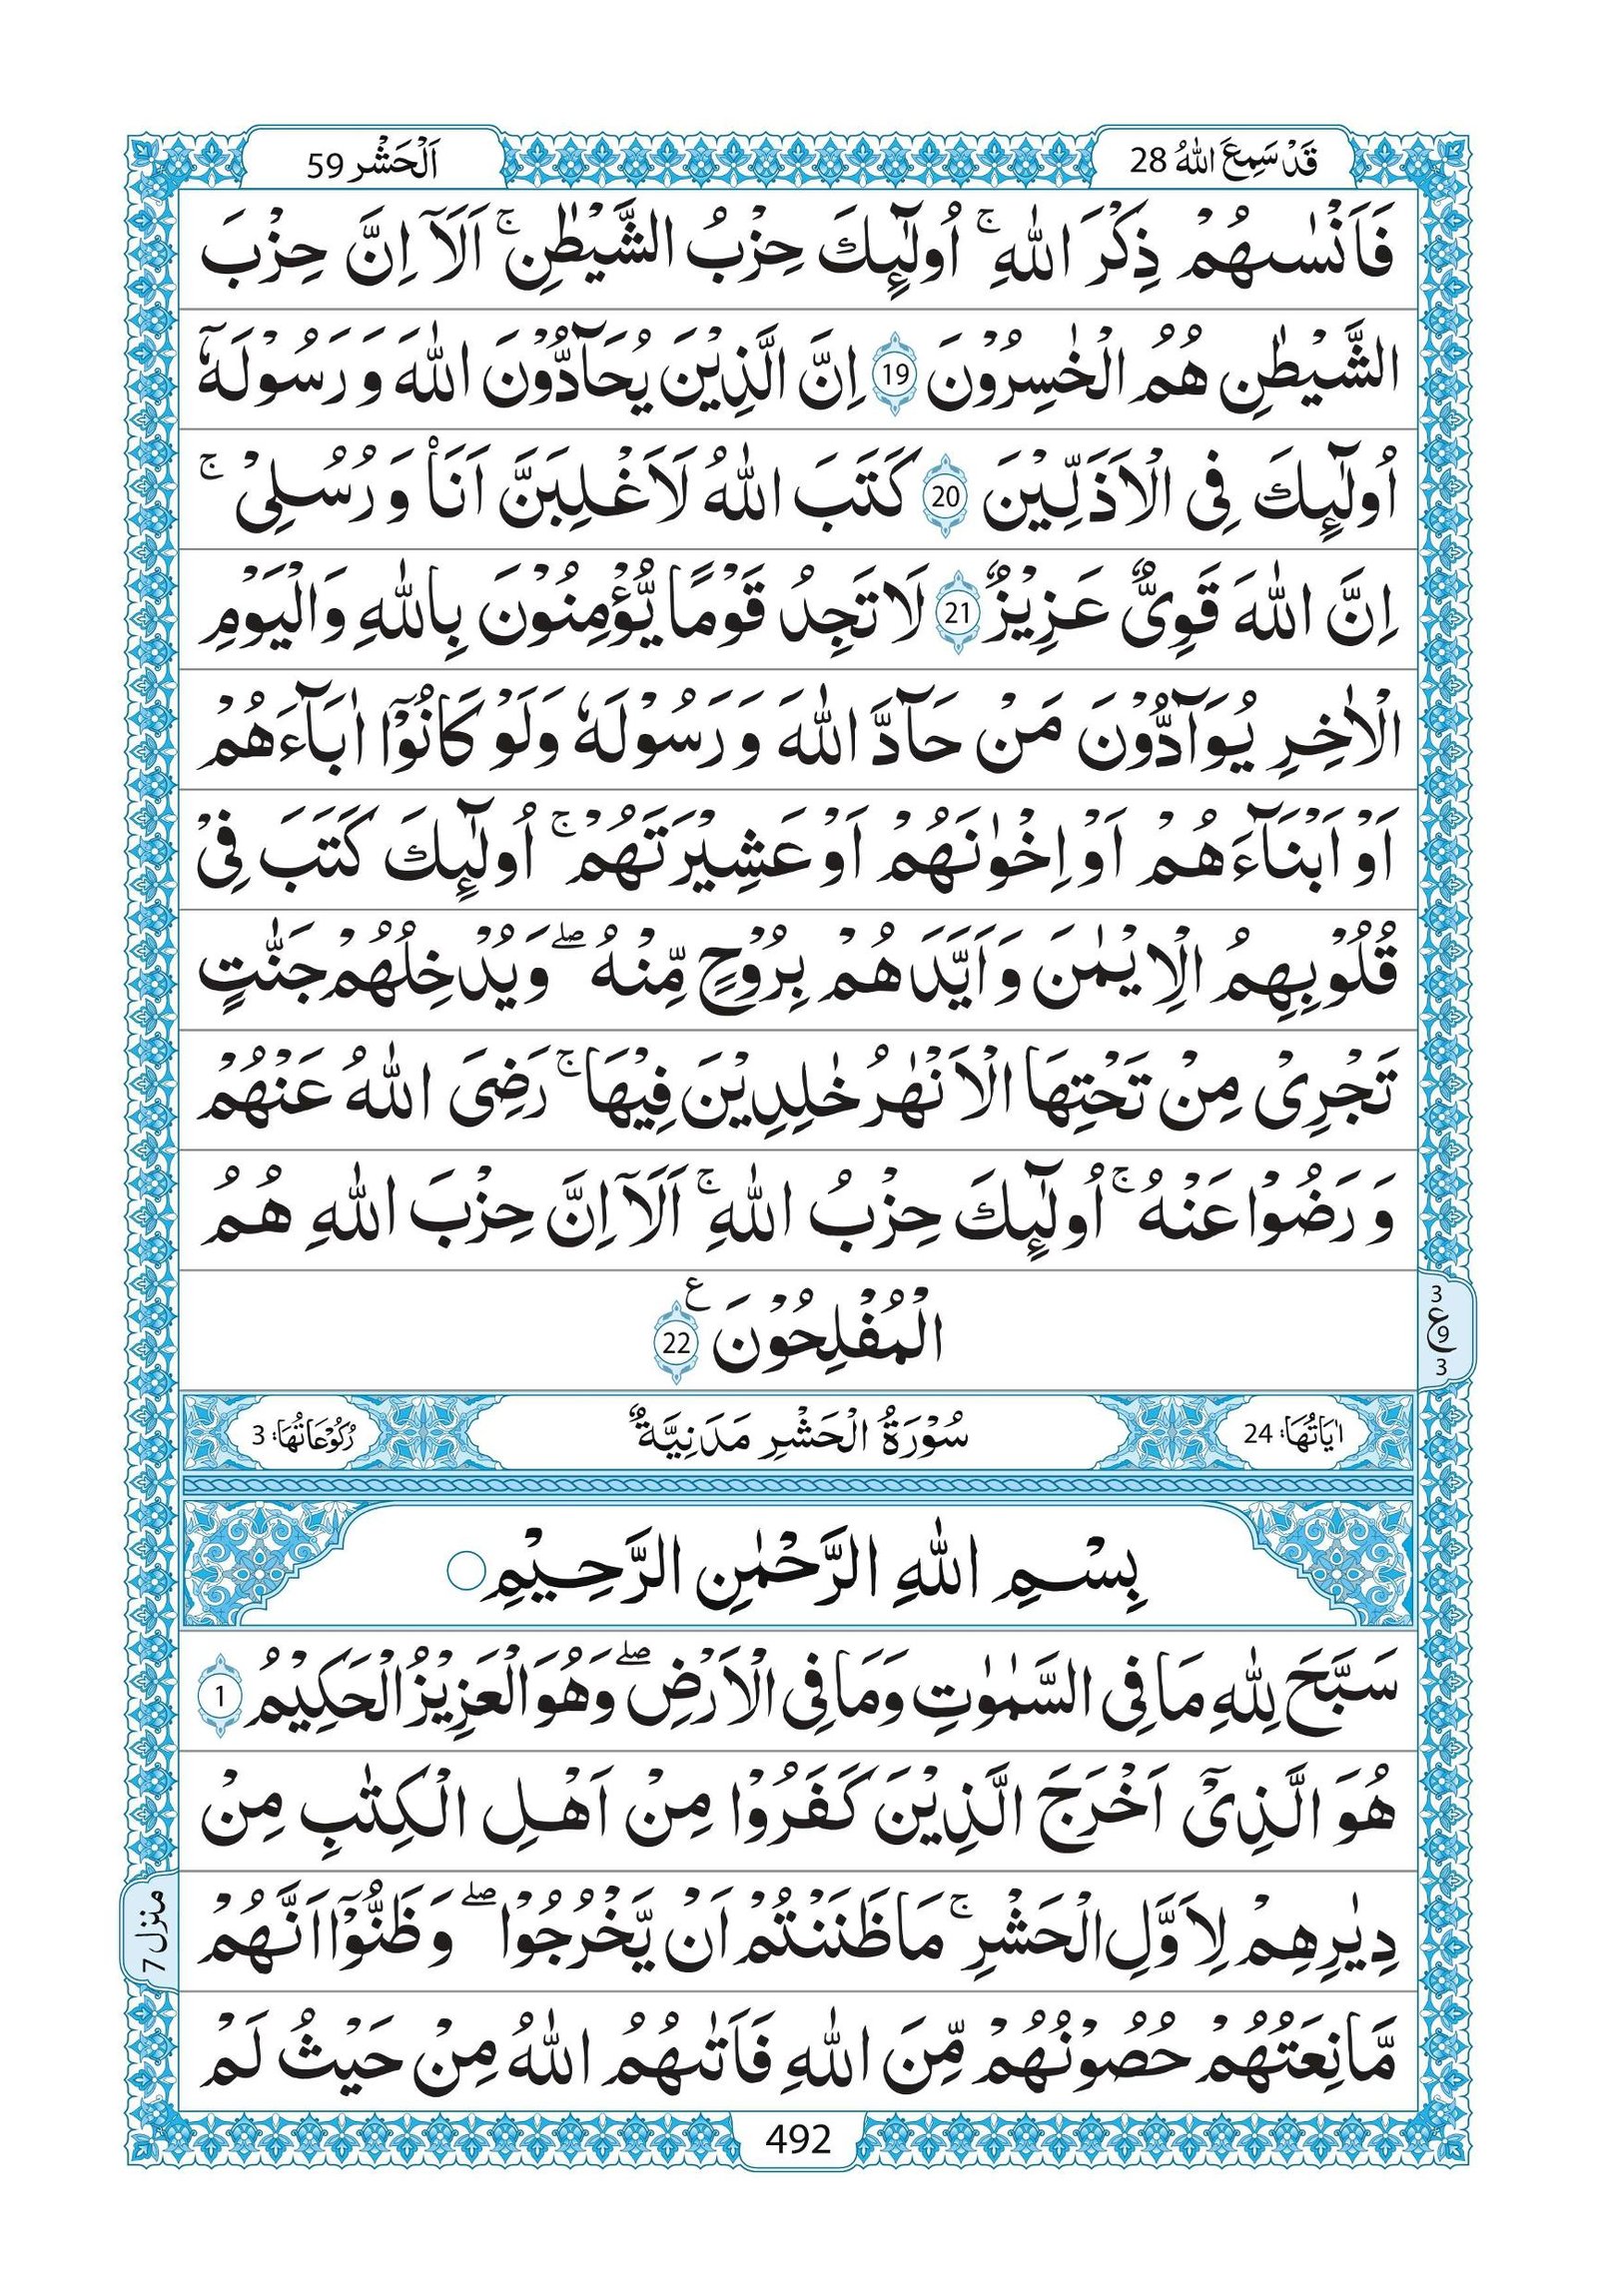 قَدْ سَمِعَ اللّٰهُ 28
اَلْحَشْر 59
فَاَنْسٰىهُمْ ذِكْرَ اللّٰهِ ۚ اُولٰٓئِكَ حِزْبُ الشَّيْطٰنِ ۚ اَلَآ اِنَّ حِزْبَ
الشَّيْطٰنِ هُمُ الْخٰسِرُوْنَ 19 اِنَّ الَّذِيْنَ يُحَآدُّوْنَ اللّٰهَ وَ رَسُوْلَهٗٓ
اُولٰٓئِكَ فِى الْاَذَلِّيْنَ 20 كَتَبَ اللّٰهُ لَاَغْلِبَنَّ اَنَا۠ وَ رُسُلِىْ ۚ
اِنَّ اللّٰهَ قَوِىٌّ عَزِيْزٌ 21 لَا تَجِدُ قَوْمًا يُّؤْمِنُوْنَ بِاللّٰهِ وَالْيَوْمِ
الْاٰخِرِ يُوَآدُّوْنَ مَنْ حَآدَّ اللّٰهَ وَ رَسُوْلَهٗ وَلَوْ كَانُوْٓا اٰبَآءَهُمْ
اَوْ اَبْنَآءَهُمْ اَوْ اِخْوٰنَهُمْ اَوْ عَشِيْرَتَهُمْ ۚ اُولٰٓئِكَ كَتَبَ فِىْ
قُلُوْبِهِمُ الْاِيْمٰنَ وَاَيَّدَهُمْ بِرُوْحٍ مِّنْهُ ۖ وَيُدْخِلُهُمْ جَنّٰتٍ
تَجْرِىْ مِنْ تَحْتِهَا الْاَنْهٰرُ خٰلِدِيْنَ فِيْهَا ۚ رَضِىَ اللّٰهُ عَنْهُمْ
وَ رَضُوْا عَنْهُ ۚ اُولٰٓئِكَ حِزْبُ اللّٰهِ ۚ اَلَآ اِنَّ حِزْبَ اللّٰهِ هُمُ
الْمُفْلِحُوْنَ ع 22
3 ع 9 3
اٰيَاتُهَا: 24
سُوْرَةُ الْحَشْرِ مَدَنِيَّةٌ
رُكُوْعَاتُهَا: 3
بِسْمِ اللّٰهِ الرَّحْمٰنِ الرَّحِيْمِ
سَبَّحَ لِلّٰهِ مَا فِى السَّمٰوٰتِ وَمَا فِى الْاَرْضِ ۖ وَهُوَ الْعَزِيْزُ الْحَكِيْمُ 1
هُوَ الَّذِىْٓ اَخْرَجَ الَّذِيْنَ كَفَرُوْا مِنْ اَهْلِ الْكِتٰبِ مِنْ
دِيٰرِهِمْ لِاَوَّلِ الْحَشْرِ ۚ مَا ظَنَنْتُمْ اَنْ يَّخْرُجُوْا ۖ وَظَنُّوْٓا اَنَّهُمْ
مَّانِعَتُهُمْ حُصُوْنُهُمْ مِّنَ اللّٰهِ فَاَتٰىهُمُ اللّٰهُ مِنْ حَيْثُ لَمْ
منزل 7
492